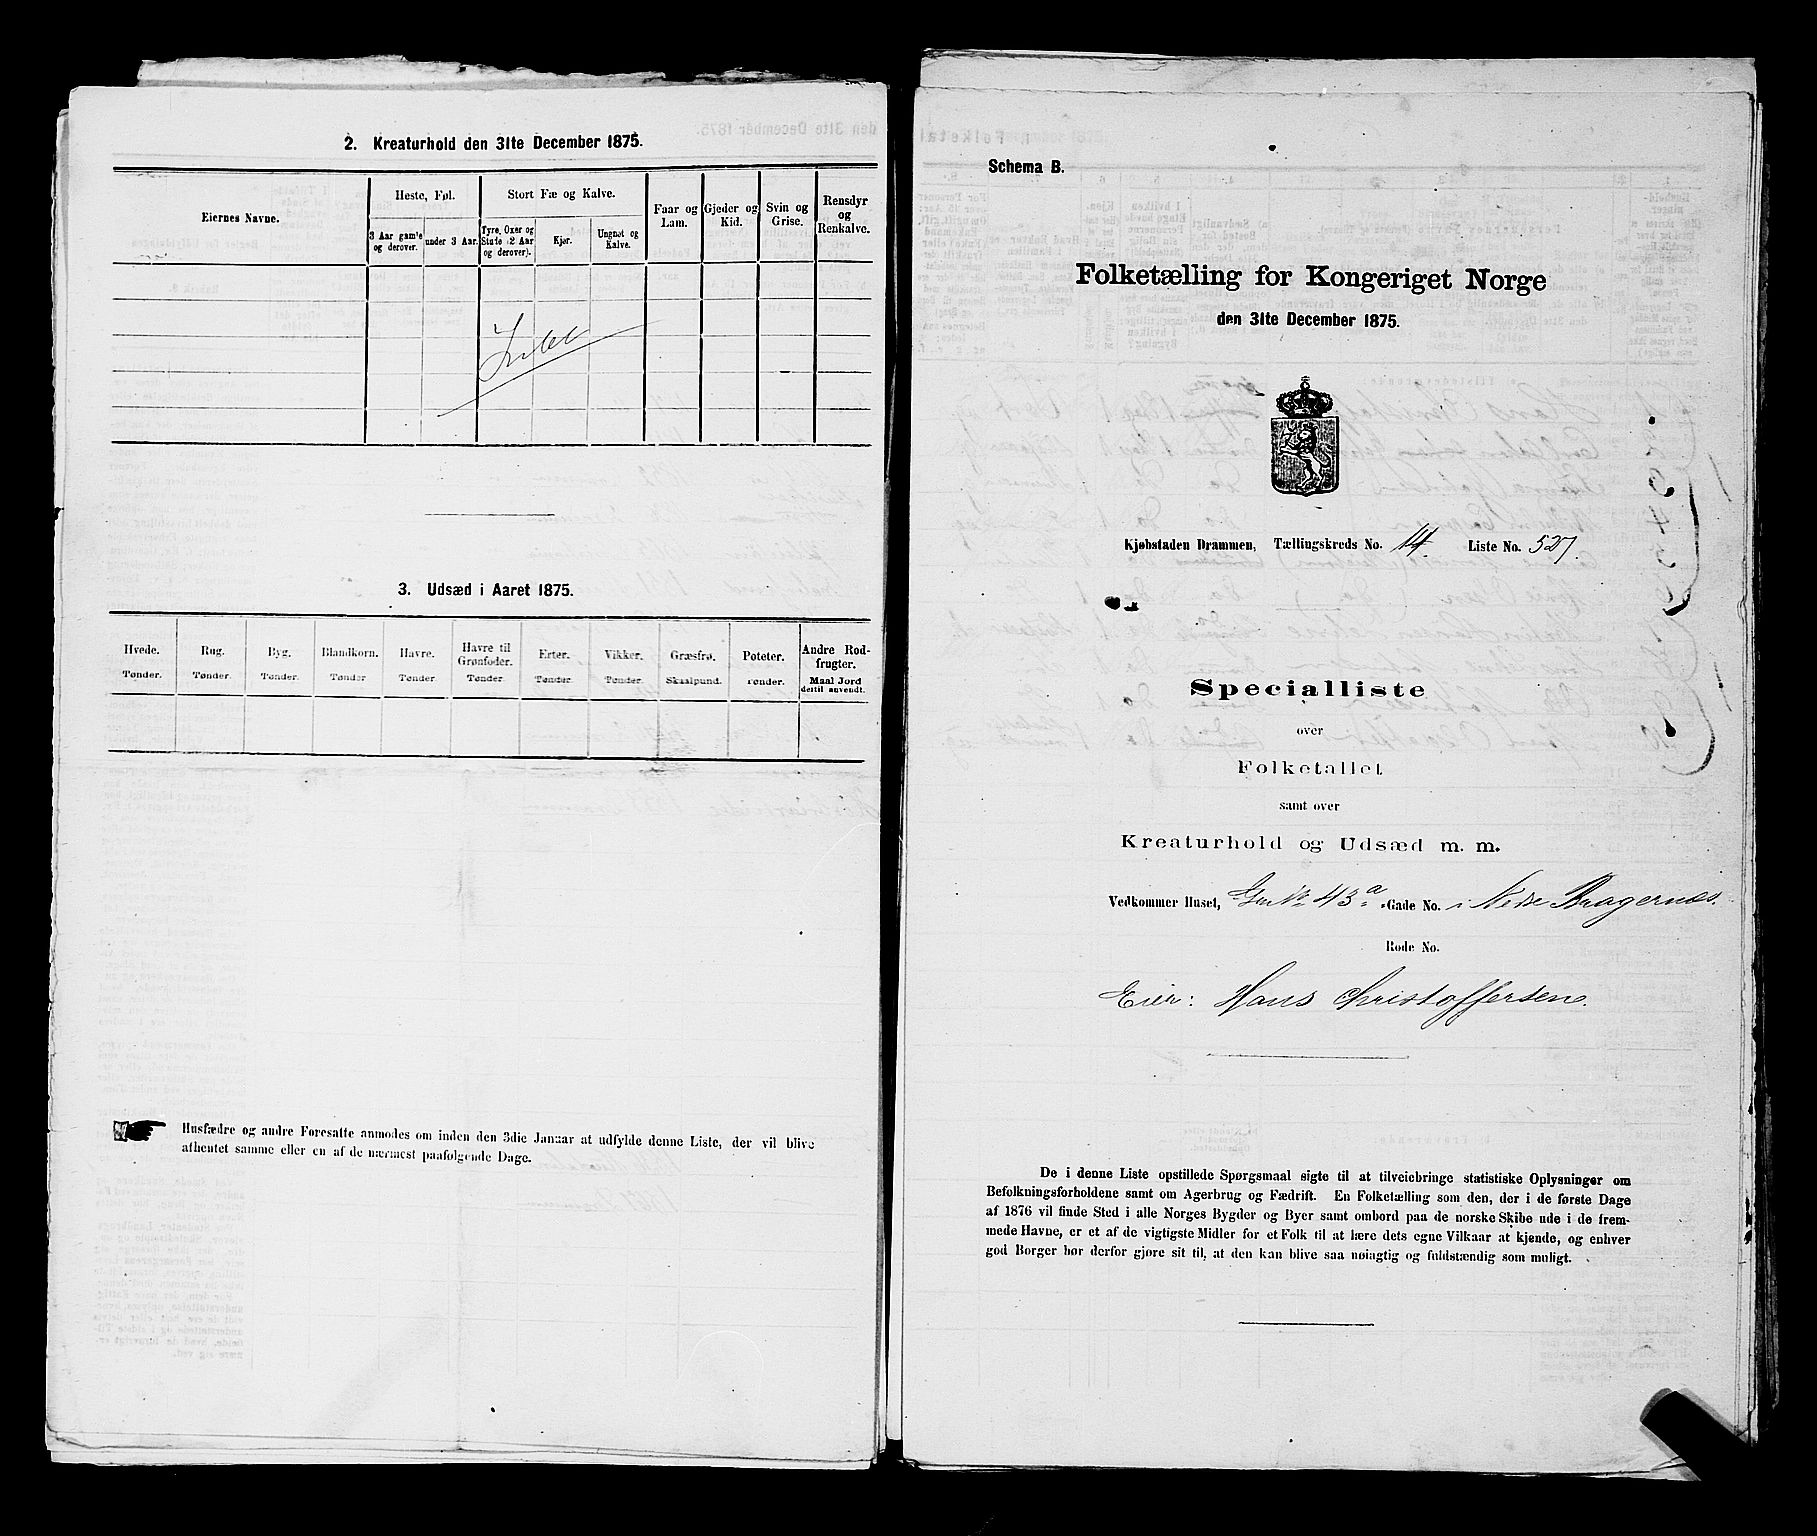 2. Kreaturhold den 31te December 1875.
Eiernes Navne.
Heste, Føl.
Stort Fæ og Kalve.
Faar og Lam.
Gjeder og Kid.
Svin og Grise.
Rensdyr og Renkalve.
3 Aar gamle og derover.
under 3 Aar.
Tyre, Oxer og Stude (2 Aar og derover).
Kjør.
Ungnøt og Kalve.
3. Udsæd i Aaret 1875.
Hvede. Tønder.
Rug. Tønder.
Byg. Tønder.
Blandkorn. Tønder
Havre. Tønder.
Havre til Grønfoder. Tønder.
Erter. Tønder.
Vikker. Tønder.
Græsfrø. Skaalpund.
Poteter. Tønder.
Andre Rodfrugter. Maal Jord dertil anvendt.
Husfædre og andre Foresatte anmodes om inden den 3die Januar at udfylde denne Liste, der vil blive
afhentet samme eller en af de nærmest paafølgende Dage.
Schema B.
Folketælling for Kongeriget Norge
den 31te December 1875.
Kjøbstaden Drammen, Tællingskreds No. 14. Liste No. 527.
Specialliste
over
Folketallet
samt over
Kreaturhold og Udsæd m. m.
Vedkommer Huset, Gr No 43a Gade No. i Nedre Bragernæs.
Rode No.
Eier: Hans Christoffersen.
De i denne Liste opstillede Spørgsmaal sigte til at tilveiebringe statistiske Oplysninger om
Befolkningsforholdene samt om Agerbrug og Fædrift. En Folketælling som den, der i de første Dage
af 1876 vil finde Sted i alle Norges Bygder og Byer samt ombord paa de norske Skibe ude i de frem-
mede Havne, er et af de vigtigste Midler for et Folk til at lære dets egne Vilkaar at kjende, og enhver
god Borger bør derfor gjøre sit til, at den kan blive saa nøiagtig og fuldstændig som muligt.